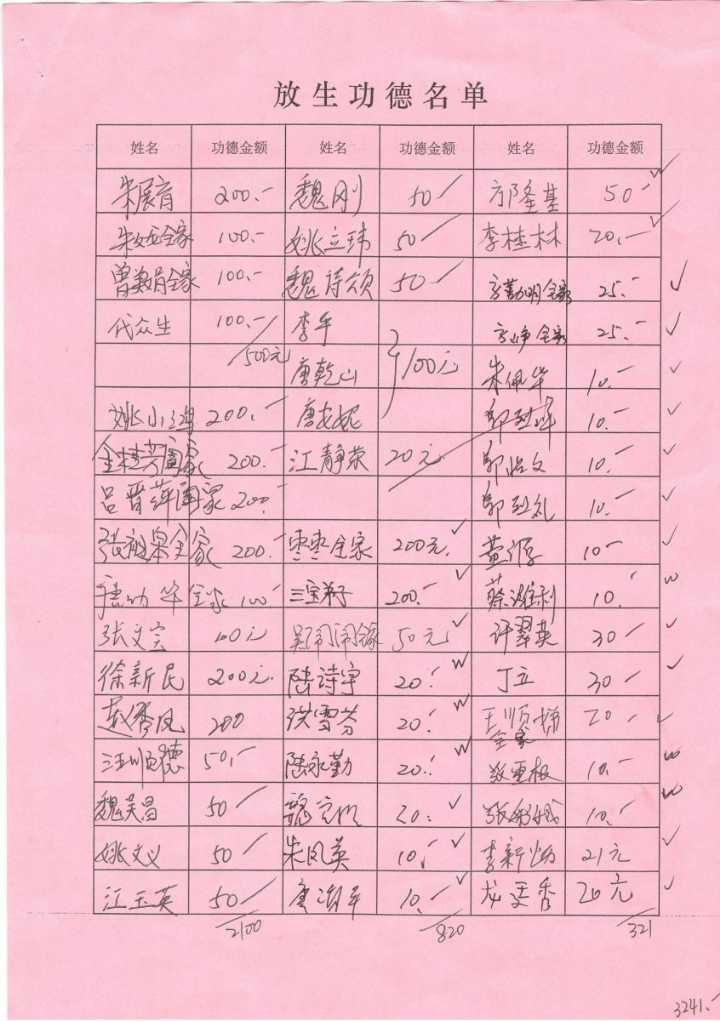 放生功德名单
姓名 功德金额 姓名 功德金额 姓名 功德金额
朱展育 200.- 魏刚 50 邝隆基 50
全家 100.- 姚立玮 50 李桂林 20.-
曾 全家 100.- 魏诗颂 50 方勤明全家 25.-
代众生 100.- 李平 方 全家 25.-
500元 唐乾山 100元 朱佩华 10.-
姚小鸿 200.- 唐 妮 10.-
金桂芳阖家 200.- 江静荣 20元 10.-
吕晋萍阖家 200.- 10.-
张 全家 200.- 枣枣全家 200元 黄源 10-
唐 华全家 100- 三宝弟子 200.- 蔡 利 10.
张文 100元 全家 50元 许翠英 30
徐新民 200元 陆诗宇 20.- 丁立 30
赵秀凤 200 洪雪芬 20.- 王顺娣全家 20-
汪顺德 50.- 陈永勤 20.- 10.-
魏吴昌 50 20. 10.-
姚文义 50 朱凤英 10.- 李新 21元
江玉英 50 唐 10.- 龙 秀 20元
2100 820 321
3241.-